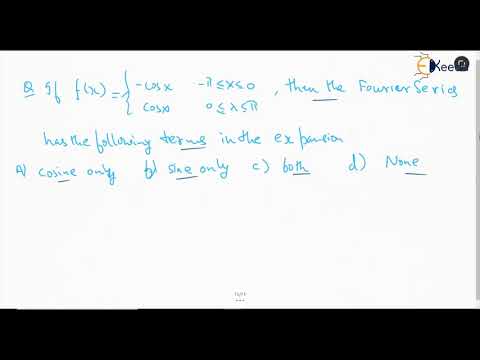 Q If f(x) = { -cosx -π ≤ x ≤ 0 , then the Fourier Series
cosx 0 ≤ x ≤ π
has the following terms in the expansion
A) cosine only b) sine only c) both d) None